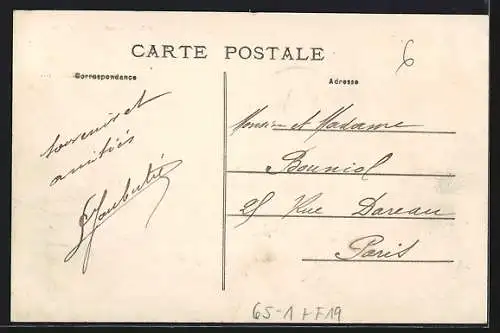 CARTE POSTALE
6
Correspondance
Adresse
souvenirs et
amitiés
Monsieur et Madame
Bouniol
25 Rue Dareau
Paris
65-1 + F19